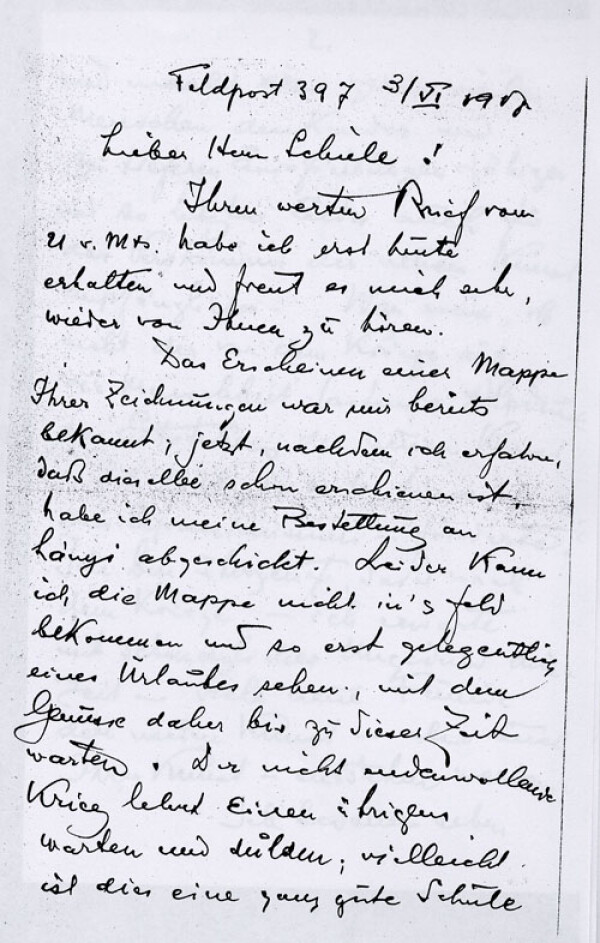 Feldpost 397 3/VI 1917
Lieber Herr Schiele!
Ihren werten Brief vom
21 v. Mts. habe ich erst heute
erhalten und freut es mich sehr,
wieder von Ihnen zu hören.
Das Erscheinen einer Mappe
Ihrer Zeichnungen war mir bereits
bekannt; jetzt, nachdem ich erfahre,
daß dieselbe schon erschienen ist,
habe ich meine Bestellung an
abgeschickt. Leider kann
ich die Mappe nicht in's Feld
bekommen und so erst gelegentlich
eines Urlaubes sehen, mit dem
Genusse daher bis zu dieser Zeit
warten. Der nicht endenwollende
Krieg lehrt Einen übrigens
warten und dulden; vielleicht
ist dies eine ganz gute Schule